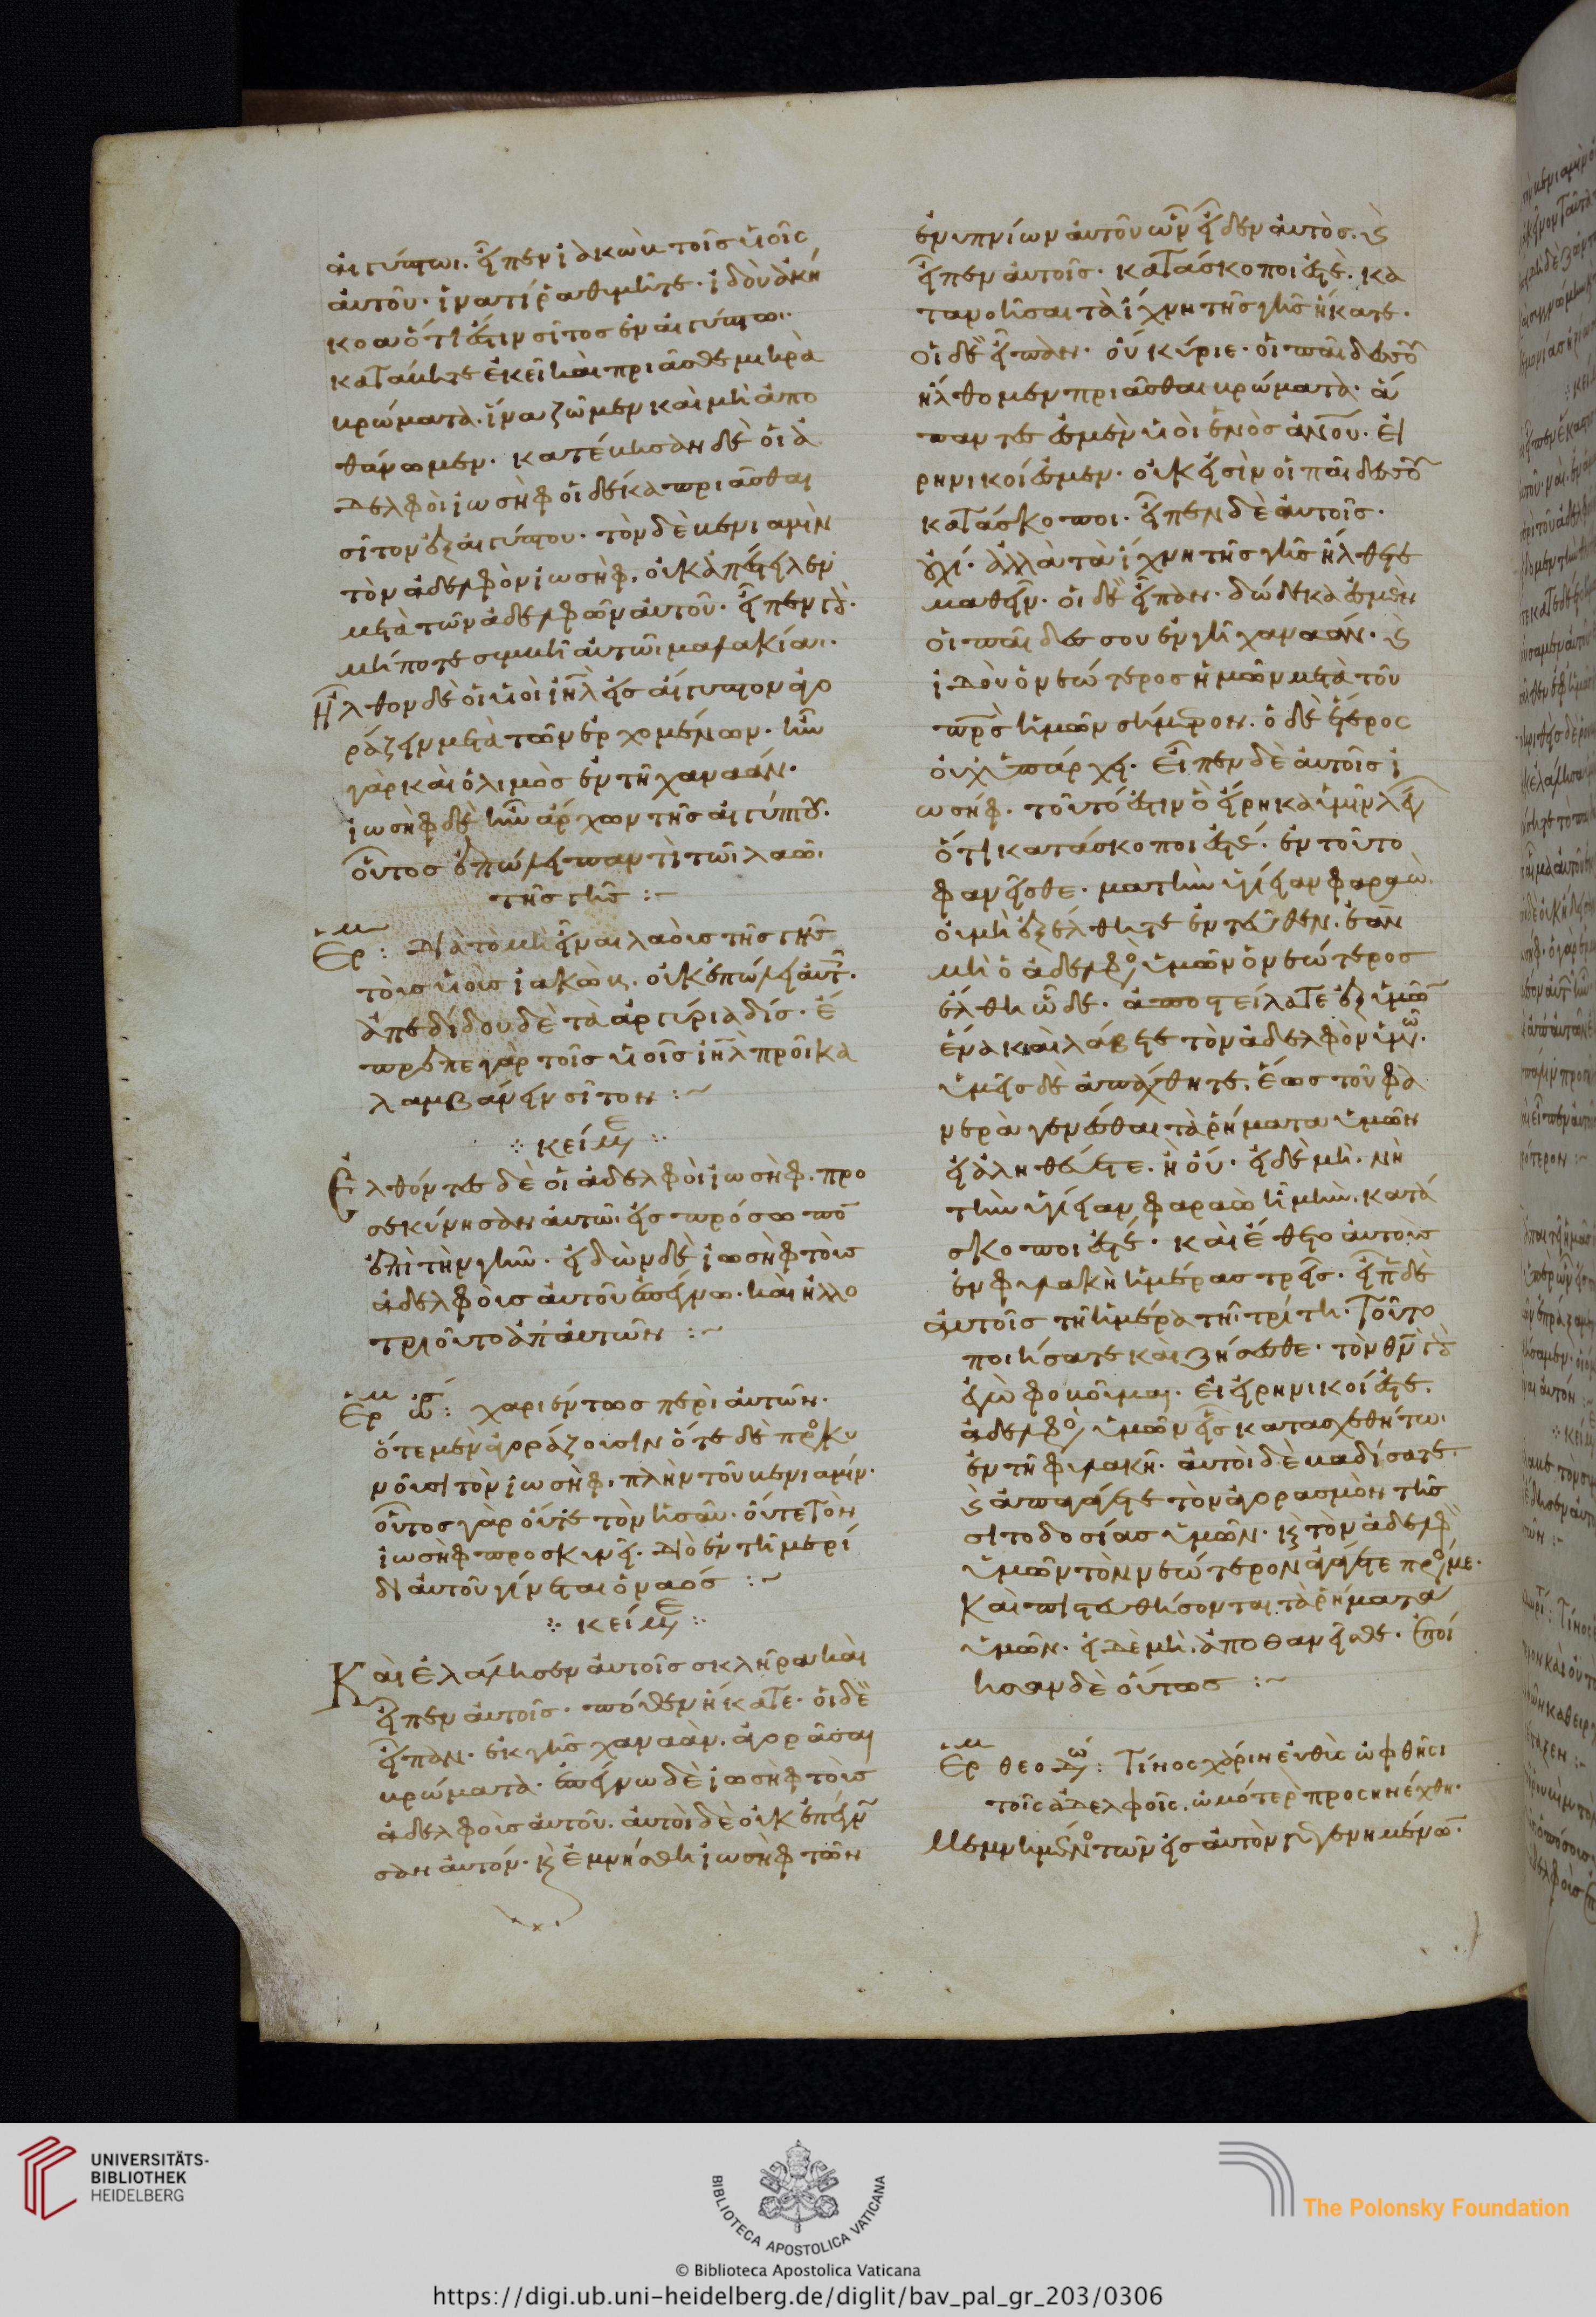 αιγύπτωι. εἶπεν ἰακὼβ τοῖς υἱοῖς
αὐτοῦ. ἱνατί ῥαθυμεῖτε. ἰδοὺ ἀκή
κοα ὅτι ἐστιν σῖτος ἐν αἰγύπτω.
κατάβητε ἐκεῖ καὶ πρίασθε μικρὰ
βρώματα. ἵνα ζῶμεν καὶ μὴ ἀπο
θάνωμεν. κατέβησαν δὲ οἱ ἀ
δελφοὶ ἰωσὴφ οἱ δέκα πρίασθαι
σῖτον ἐξ αἰγύπτου. τὸν δὲ βενιαμὶν
τὸν ἀδελφὸν ἰωσὴφ, οὐκ ἀπέστειλεν
μετὰ τῶν ἀδελφῶν αὐτοῦ. εἶπεν γὰρ.
μήποτε συμβῆ αὐτῶι μαλακία.
Ἦλθον δὲ οἱ υἱοὶ ἰηλ εἰς αἴγυπτον ἀγο
ράζειν μετὰ τῶν ἐρχομένων. ἦν
γὰρ καὶ ὁ λιμὸς ἐν τῆ χαναάν.
ἰωσὴφ δὲ ἦν ἄρχων τῆς αἰγύπτου.
οὗτος ἐπώλει παντὶ τῶι λαῶι
τῆς γῆς :~
Ερμ : Διὰ τὸ μὴ εἶναι λαοὺς τῆς γῆς
τοὺς υἱοὺς ἰακώβ. οὐκ ἐπώλει αὐτ.
ἀπεδίδου δὲ τὰ ἀργύρια δίς. ἔ
πρεπε γὰρ τοῖς υἱοῖς ἰηλ προῖκα
λαμβάνειν σῖτον :~
κείμε
Ἐλθόντες δὲ οἱ ἀδελφοὶ ἰωσὴφ. προ
σεκύνησαν αὐτῶ. εἰς πρόσωπον
ἐπὶ τὴν γῆν. ἰδὼν δὲ ἰωσὴφ τοὺς
ἀδελφοὺς αὐτοῦ ἐπέγνω. καὶ ἠλλο
τριοῦτο ἀπ' αὐτῶν :~
Ερμ ωρ : χαριέντως περὶ αὐτῶν.
ὅτε μὲν ἀγοράζουσιν ὅτε δὲ προσκυ
νοῦσι τὸν ἰωσὴφ. πλὴν τοῦ βενιαμίν.
οὗτος γὰρ οὔτε τὸν ἠσαῦ. οὔτε τὸν
ἰωσὴφ προσκυνεῖ. διὸ ἐν τῆ μερί
δι αὐτοῦ γίνεται ὁ ναός :~
κείμε
Καὶ ἐλάλησεν αὐτοῖς σκληρὰ καὶ
εἶπεν αὐτοῖς. πόθεν ἥκατε. οἱ δὲ
εἶπαν. ἐκ γῆς χαναὰν. ἀγορᾶσαι
βρώματα. ἐπέγνω δὲ ἰωσὴφ τοὺς
ἀδελφοὺς αὐτοῦ. αὐτοὶ δὲ οὐκ ἐπέγνω
σαν αὐτόν. κ ἐμνήσθη ἰωσὴφ τῶν
ἐνυπνίων αὐτοῦ ὧν εἶδεν αὐτὸς. κ
εἶπεν αὐτοῖς. κατάσκοποι ἐστὲ. κα
τανοῆσαι τὰ ἴχνη τῆς γῆς ἥκατε.
οἱ δὲ εἶπαν. οὐ κύριε. οἱ παῖδές σου
ἤλθομεν πρίασθαι βρώματα. ἅ
παντες ἐσμὲν υἱοὶ ἑνὸς ἀνου. εἰ
ρηνικοί ἐσμεν. οὐκ εἰσὶν οἱ παῖδές σου
κατάσκοποι. εἶπεν δὲ αὐτοῖς.
οὐχί. ἀλλὰ τὰ ἴχνη τῆς γῆς ἤλθετε
μαθεῖν. οἱ δὲ εἶπαν. δώδεκα ἐσμὲν
οἱ παῖδες σου ἐν γῆ χαναάν. κ
ἰδοὺ ὁ νεώτερος ἡμῶν μετὰ τοῦ
πρς ἡμῶν σήμερον. ὁ δὲ ἕτερος
οὐχ ὑπάρχει. εἶπεν δὲ αὐτοῖς ἰ
ωσήφ. τοῦτό ἐστιν ὃ εἴρηκα ὑμῖν λέγων
ὅτι κατάσκοποι ἐστέ. ἐν τοῦτο
φανεῖσθε. μὰ τὴν ὑγίειαν φαραὼ.
οὐ μὴ ἐξέλθητε ἐντεῦθεν. ἐὰν
μὴ ὁ ἀδελφὸς ὑμῶν ὁ νεώτερος
ἔλθη ὧδε. ἀποστείλατε ἐξ ὑμῶν
ἕνα καὶ λάβετε τὸν ἀδελφὸν ὑμῶν.
ὑμεῖς δὲ ἀπάχθητε. ἕως τοῦ φα
νερὰ γενέσθαι τὰ ῥήματα ὑμῶν
εἰ ἀληθεύετε. ἢ οὔ. εἰ δὲ μὴ. νὴ
τὴν ὑγίειαν φαραὼ ἦ μὴν. κατά
σκοποι ἐστέ. καὶ ἔθετο αὐτοὺς
ἐν φυλακῆ ἡμέρας τρεῖς. εἶπ δὲ
αὐτοῖς τῆ ἡμέρα τῆ τρίτη. τοῦτο
ποιήσατε καὶ ζήσεσθε. τὸν θν γὰρ
ἐγὼ φοβοῦμαι. εἰ εἰρηνικοί ἐστε.
ἀδελφὸς ὑμῶν εἷς κατασχεθήτω.
ἐν τῆ φυλακῆ. αὐτοὶ δὲ βαδίσατε.
κ ἀπαγάγετε τὸν ἀγορασμὸν τῆς
σιτοδοσίας ὑμῶν. κ τὸν ἀδελφὸν
ὑμῶν τὸν νεώτερον ἀγάγετε πρός με.
καὶ πιστευθήσονται τὰ ῥήματα
ὑμῶν. εἰ δὲ μὴ. ἀποθανεῖσθε. ἐποί
ησαν δὲ οὕτως :~
Ερμ θεοδω : Τίνος χάριν εὐθὺς ὠφθῆσι
τοῖς ἀδελφοῖς. ὠμότερ προσηνέχθη.
Μεμνημένος τῶν εἰς αὐτὸν γεγενημένων.
UNIVERSITÄTS-
BIBLIOTHEK
HEIDELBERG
BIBLIOTECA APOSTOLICA VATICANA
The Polonsky Foundation
© Biblioteca Apostolica Vaticana
https://digi.ub.uni-heidelberg.de/diglit/bav_pal_gr_203/0306